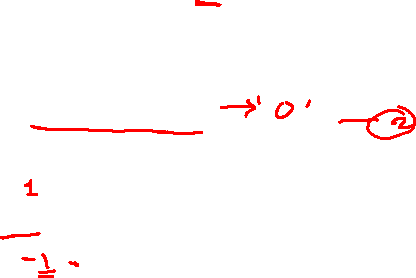 → '0' — 2
1
- 1 -